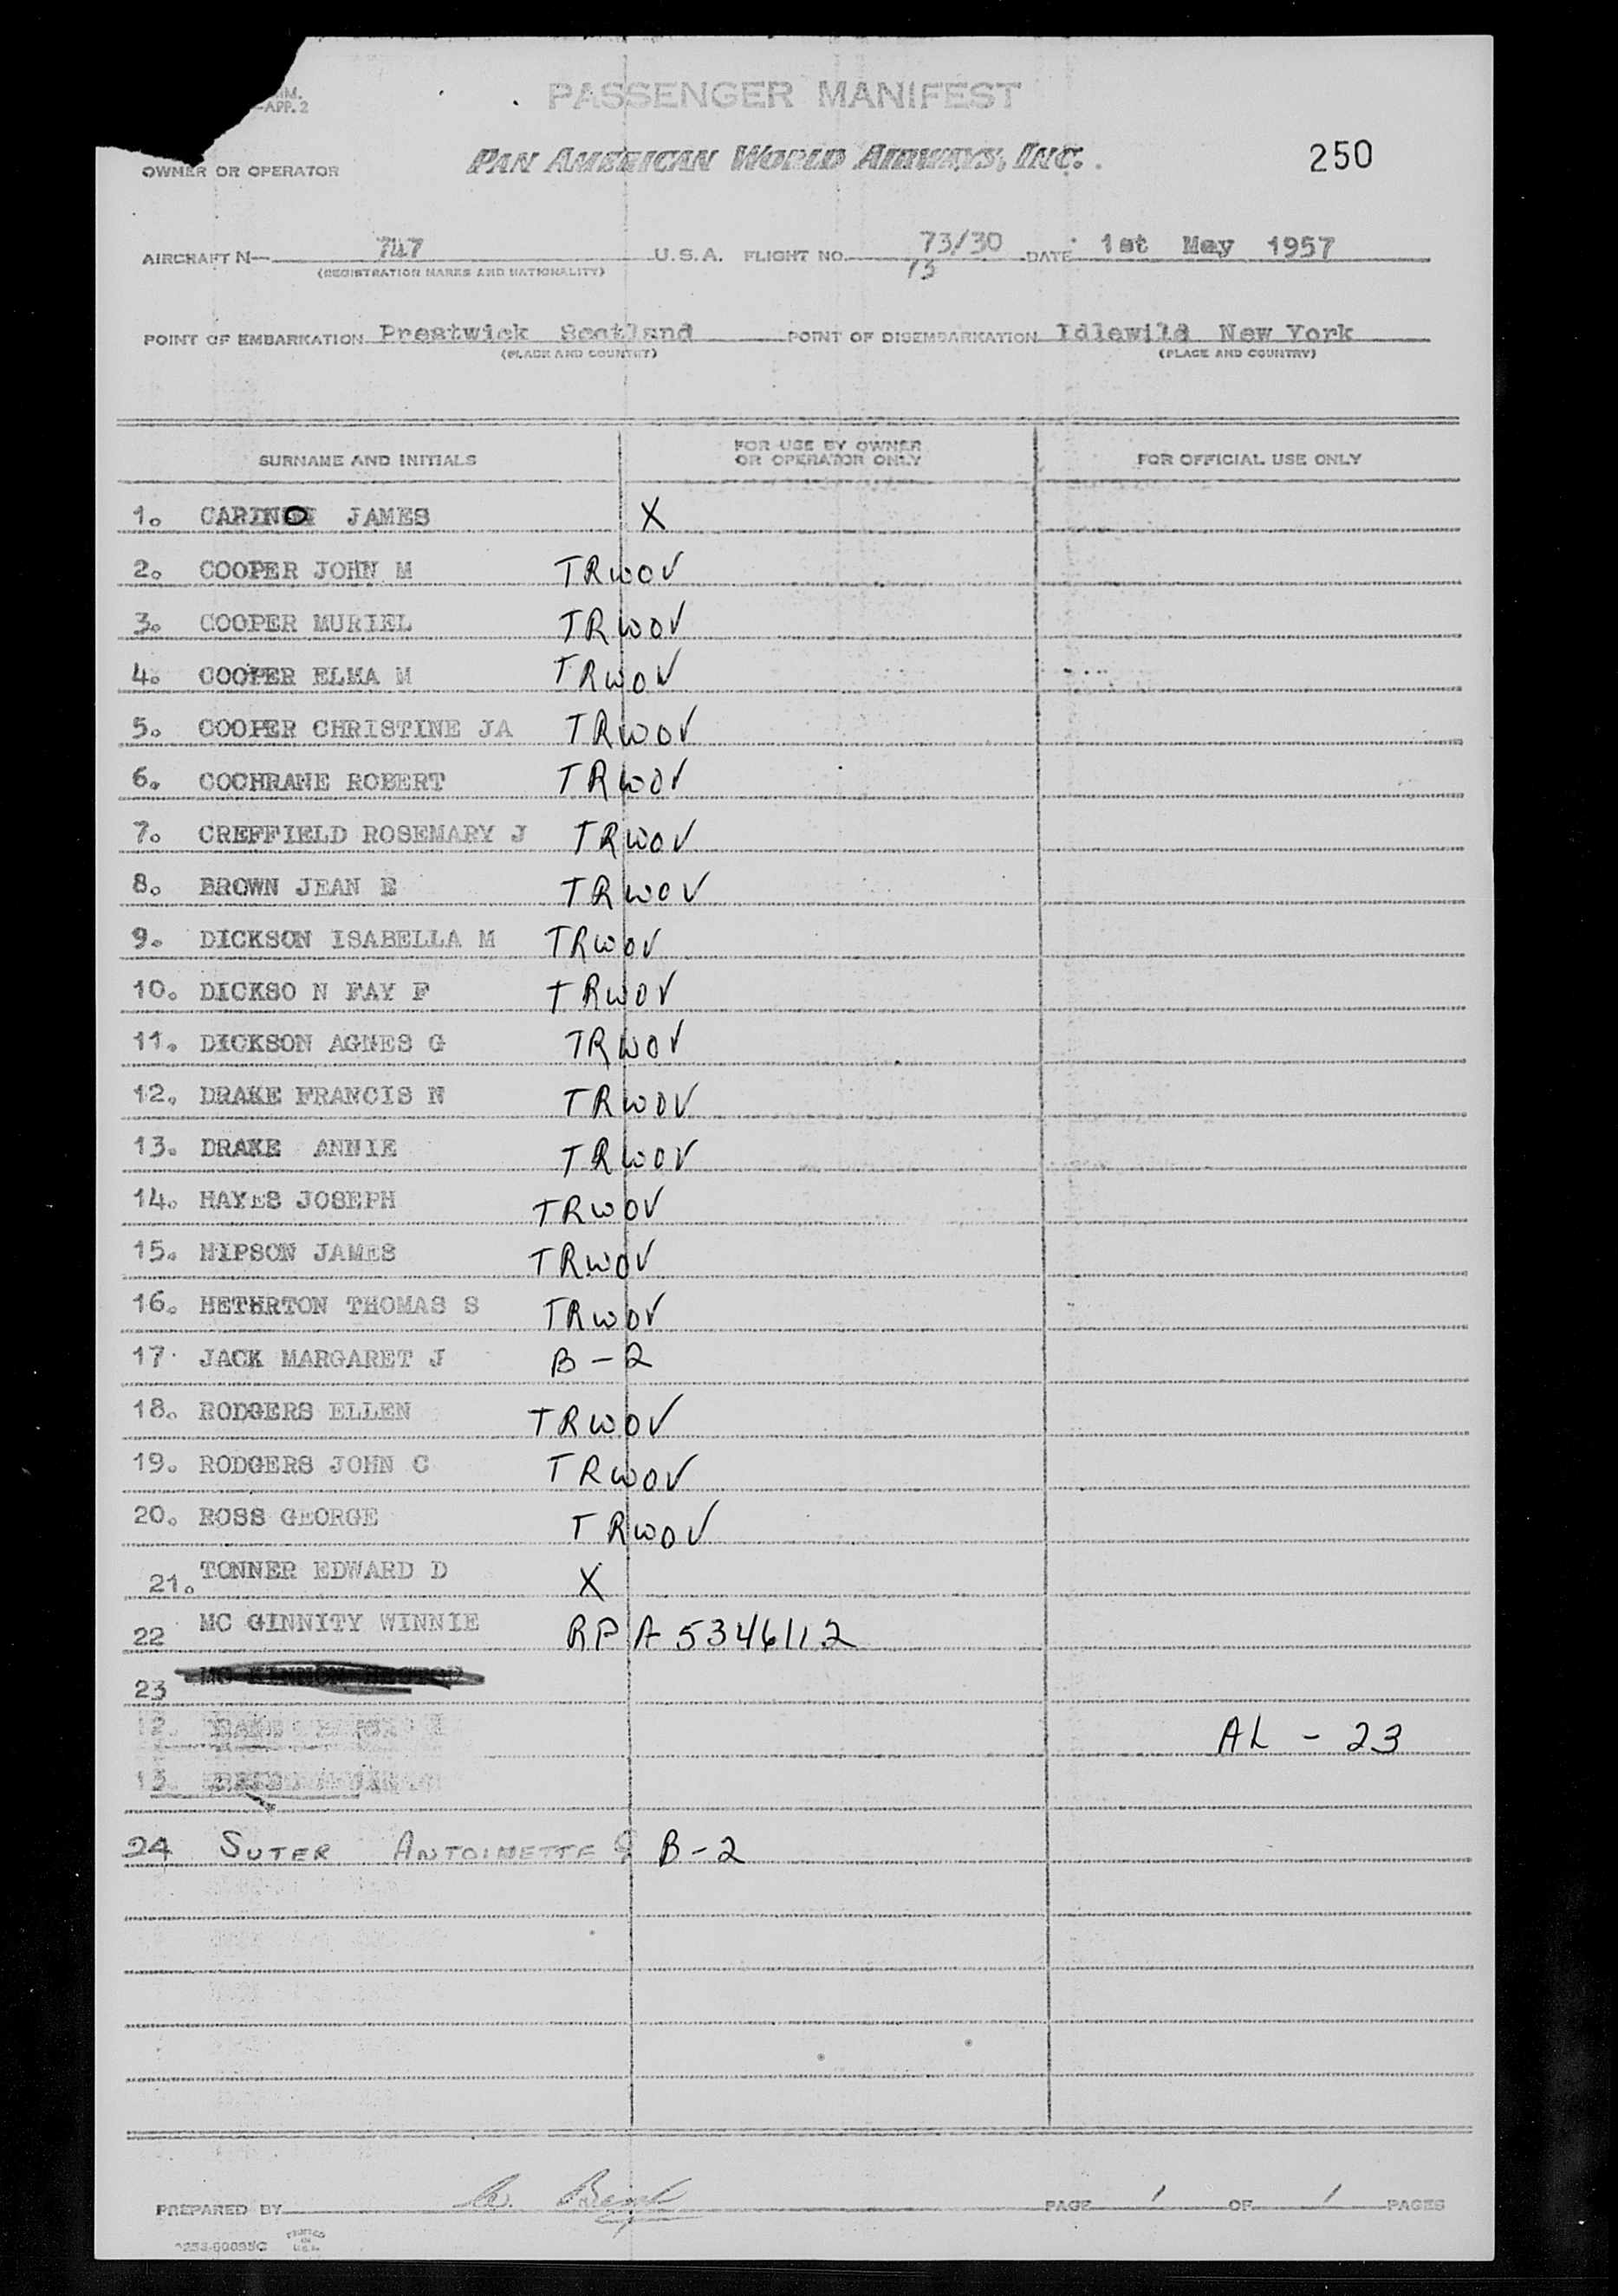 -APP. 2
PASSENGER MANIFEST
OWNER OR OPERATOR PAN AMERICAN WORLD AIRWAYS, INC. 250
AIRCRAFT N— 747 U.S.A. FLIGHT NO. 73/30 DATE 1st May 1957
(REGISTRATION MARKS AND NATIONALITY) 73
POINT OF EMBARKATION Prestwick Scotland POINT OF DISEMBARKATION Idlewild New York
(PLACE AND COUNTRY) (PLACE AND COUNTRY)
SURNAME AND INITIALS FOR USE BY OWNER OR OPERATOR ONLY FOR OFFICIAL USE ONLY
1. CARINO JAMES X
2. COOPER JOHN M TRWOV
3. COOPER MURIEL TRWOV
4. COOPER ELMA M TRWOV
5. COOPER CHRISTINE JA TRWOV
6. COCHRANE ROBERT TRWOV
7. CREFFIELD ROSEMARY J TRWOV
8. BROWN JEAN E TRWOV
9. DICKSON ISABELLA M TRWOV
10. DICKSO N FAY F TRWOV
11. DICKSON AGNES G TRWOV
12. DRAKE FRANCIS N TRWOV
13. DRAKE ANNIE TRWOV
14. HAYES JOSEPH TRWOV
15. HIPSON JAMES TRWOV
16. HETHRTON THOMAS S TRWOV
17. JACK MARGARET J B-2
18. RODGERS ELLEN TRWOV
19. RODGERS JOHN C TRWOV
20. ROSS GEORGE TRWOV
21. TONNER EDWARD D X
22 MC GINNITY WINNIE RPA 5346112
23
12. AL - 23
13.
24 SUTER ANTOINETTE B-2
PREPARED BY PAGE 1 OF 1 PAGES
PRINTED
IN
U.S.A.